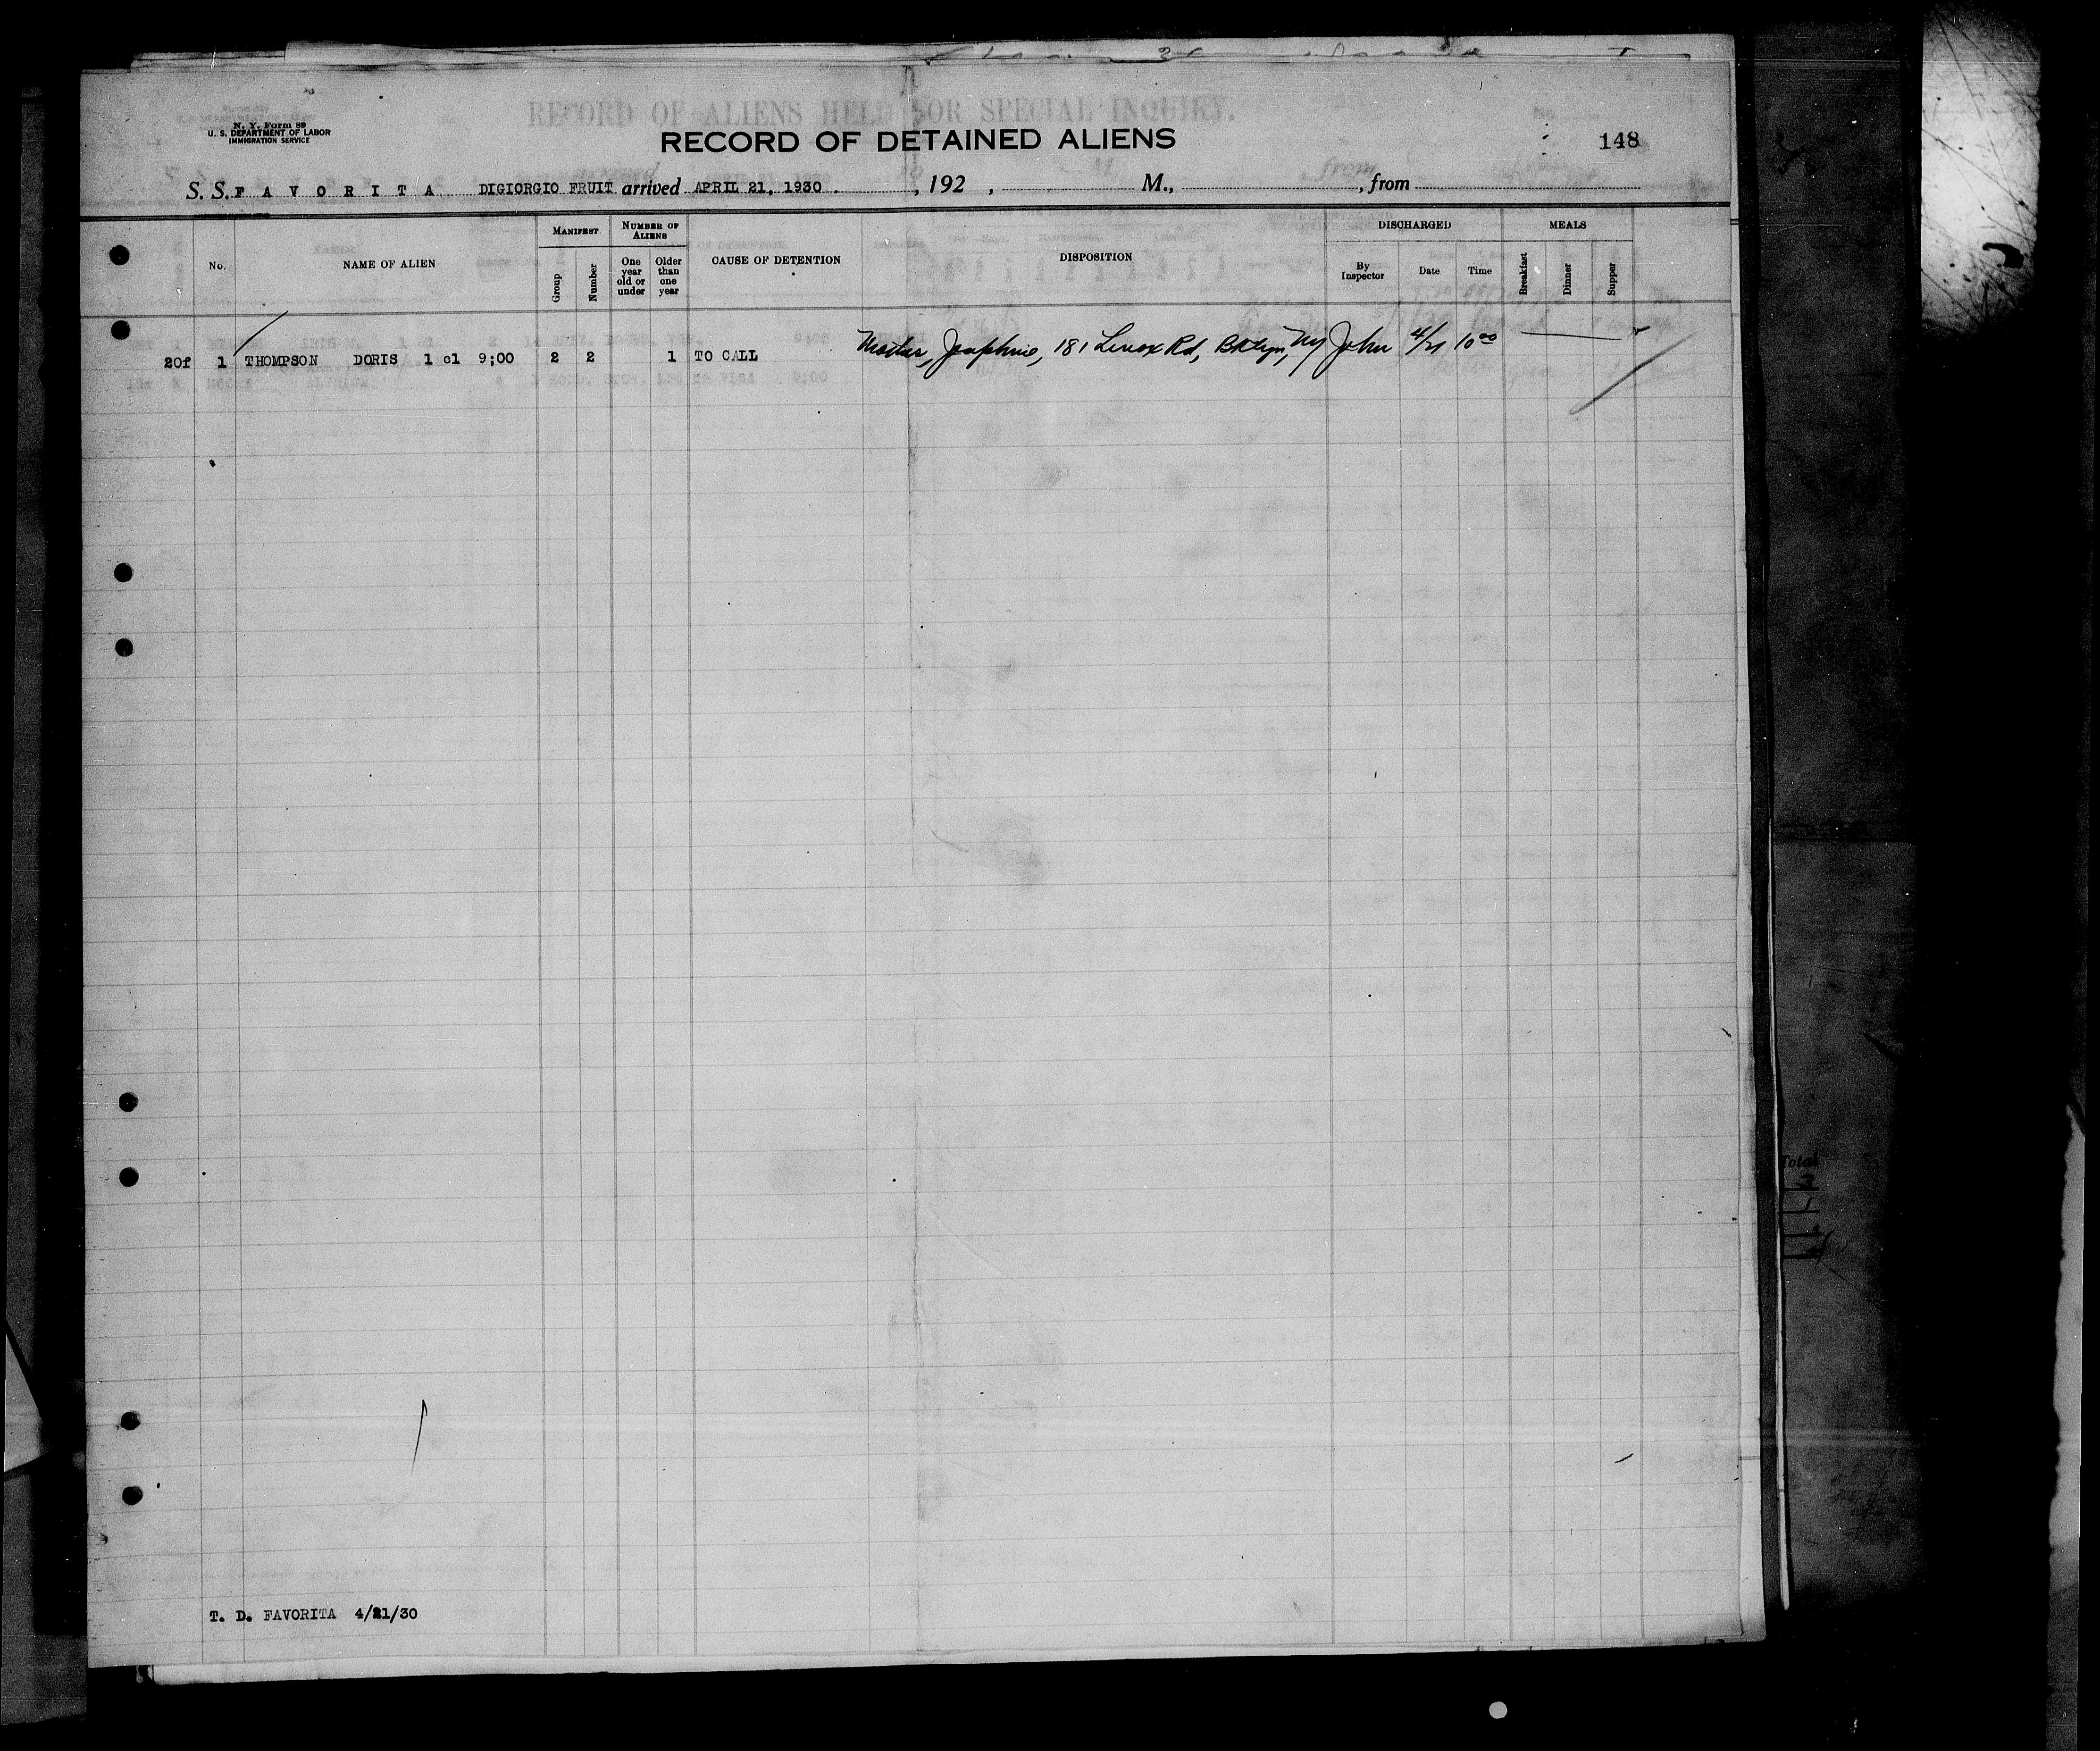 RECORD OF ALIENS HELD FOR SPECIAL INQUIRY.
N. Y. Form 89
U. S. DEPARTMENT OF LABOR
IMMIGRATION SERVICE
RECORD OF DETAINED ALIENS
148
S. S. F A V O R I T A DIGIORGIO FRUIT arrived APRIL 21, 1930 , 192 , M., , from
No.
NAME OF ALIEN
MANIFEST
Group
Number
NUMBER OF ALIENS
One year old or under
Older than one year
CAUSE OF DETENTION
DISPOSITION
DISCHARGED
By Inspector
Date
Time
MEALS
Breakfast
Dinner
Supper
20f 1 THOMPSON DORIS 1 c1 9;00 2 2 1 TO CALL Mother, Josephine, 181 Lenox Rd, Bklyn, Ny John 4/21 10 00
Total
T. D. FAVORITA 4/21/30